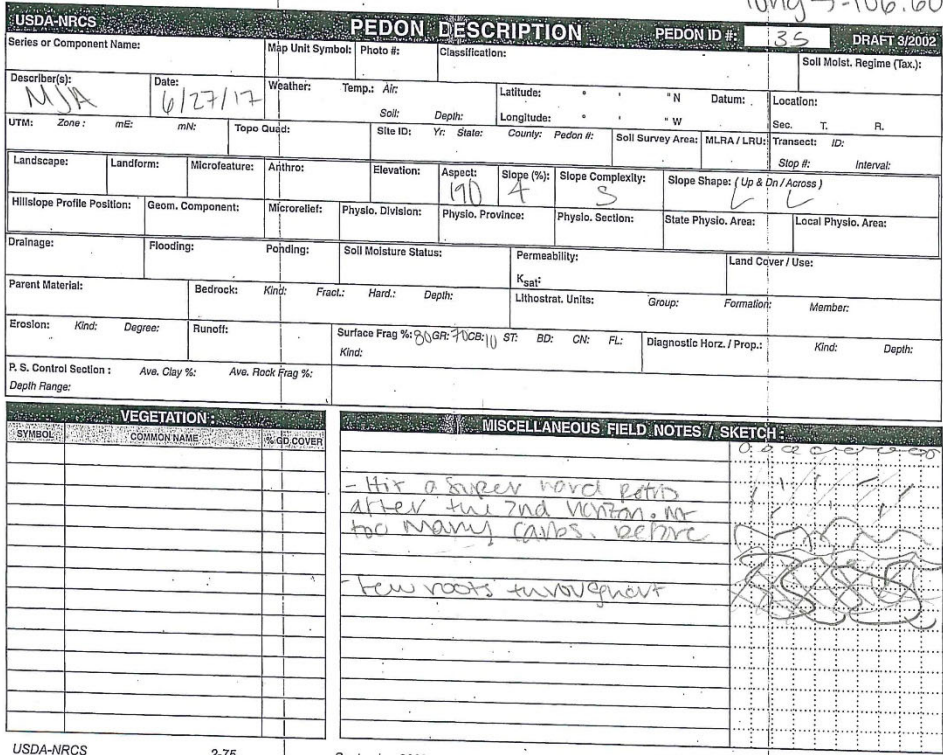 long → -106.60
USDA-NRCS PEDON DESCRIPTION PEDON ID #: 35 DRAFT 3/2002
Series or Component Name: Map Unit Symbol: Photo #: Classification: Soil Moist. Regime (Tax.):
Describer(s): Date: Weather: Temp.: Air: Latitude: ° ' " N Datum: Location:
MJA 6/27/17 Soil: Depth: Longitude: ° ' " W Sec. T. R.
UTM: Zone: mE: mN: Topo Quad: Site ID: Yr: State: County: Pedon #: Soil Survey Area: MLRA / LRU: Transect: ID:
Stop #: Interval:
Landscape: Landform: Microfeature: Anthro: Elevation: Aspect: Slope (%): Slope Complexity: Slope Shape: (Up & Dn / Across)
190 4 S L L
Hillslope Profile Position: Geom. Component: Microrelief: Physio. Division: Physio. Province: Physio. Section: State Physio. Area: Local Physio. Area:
Drainage: Flooding: Ponding: Soil Moisture Status: Permeability: Land Cover / Use:
Ksat:
Parent Material: Bedrock: Kind: Fract.: Hard.: Depth: Lithostrat. Units: Group: Formation: Member:
Erosion: Kind: Degree: Runoff: Surface Frag %: 80 GR: 70 CB: 10 ST: BD: CN: FL: Diagnostic Horz. / Prop.: Kind: Depth:
Kind:
P. S. Control Section: Ave. Clay %: Ave. Rock Frag %:
Depth Range:
VEGETATION: MISCELLANEOUS FIELD NOTES / SKETCH:
SYMBOL COMMON NAME % GD COVER
- Hit a super hard petro
after the 2nd horizon. not
too many carbs. before
- few roots throughout
USDA-NRCS 2-75